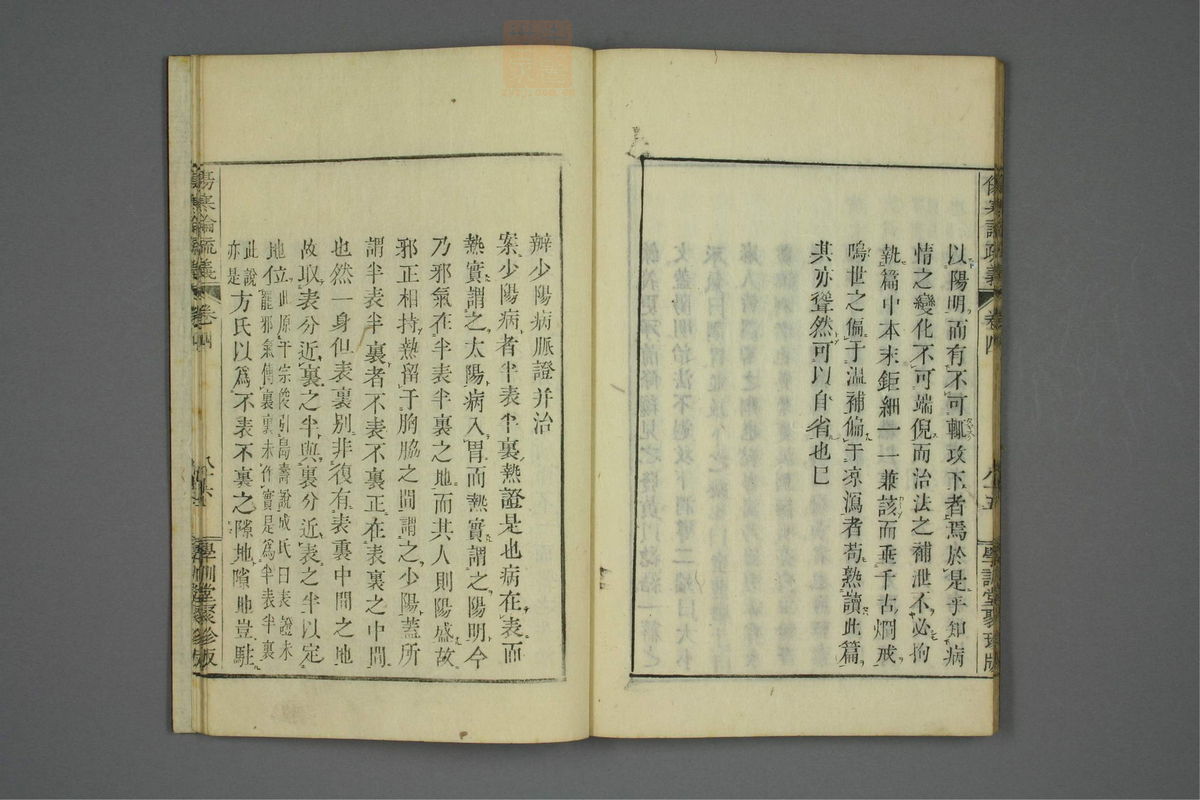 傷寒論疏義 卷四 八十五 學訓堂聚珍版
以陽明而有不可輒攻下者焉於是乎知病
情之變化不可端倪而治法之補泄不必拘
執篇中本末鉅細一一兼該而垂千古烱戒
鳴世之偏于溫補偏于凉瀉者苟熟讀此篇
其亦聳然可以自省也已
辨少陽病脈證并治
案少陽病者半表半裏熱證是也病在表而
熱實謂之太陽病入胃而熱實謂之陽明今
乃邪氣在半表半裏之地而其人則陽盛故
邪正相持熱留于胸脇之間謂之少陽蓋所
謂半表半裏者不表不裏正在表裏之中間
也然一身但表裏別非復有表裏中間之地
故取表分近裏之半與裏分近表之半以定
地位此原于宗俊引烏壽說成氏曰表證未
何罷邪氣傳裏裏未作實是爲半表半裏
此說
亦是方氏以爲不表不裏之隙地隙地豈駐
傷寒論疏義 卷四 八十六 學訓堂聚珍版